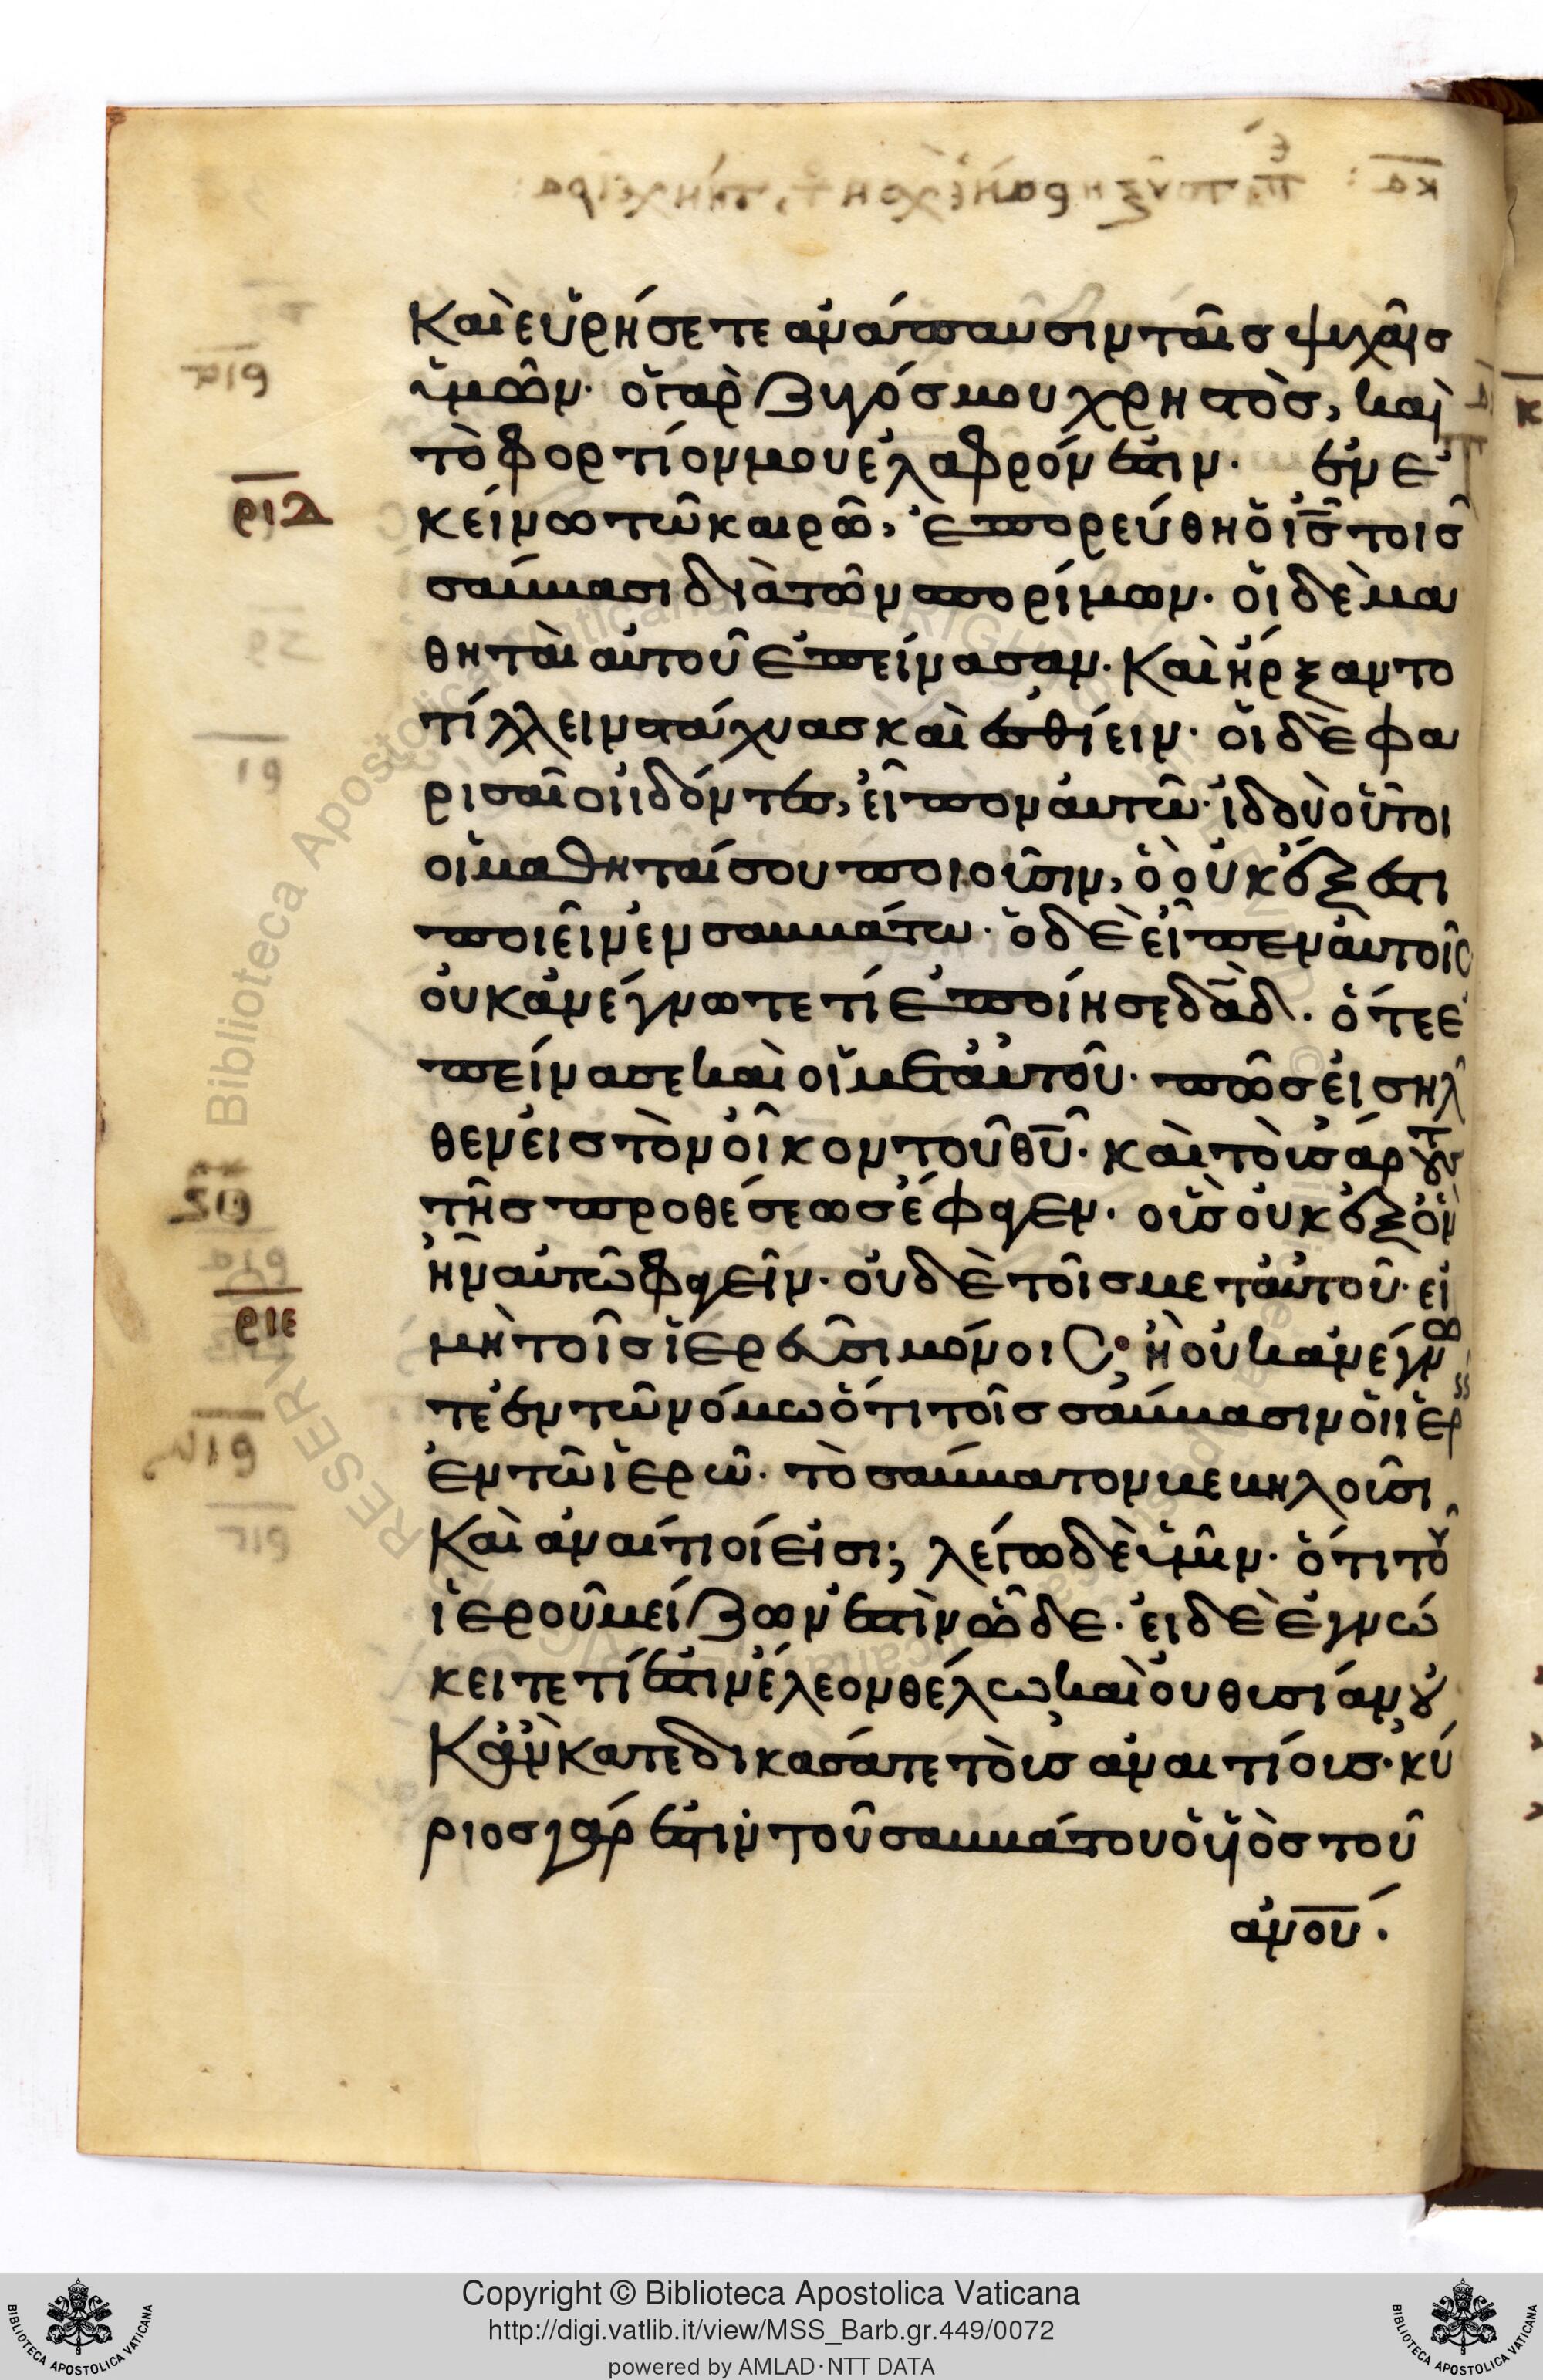 Καὶ εὑρήσετε ἀνάπαυσιν ταῖσ ψυχαῖσ
ὑμῶν· ὁ γὰρ ζυγόσ μου χρηστὸσ, καὶ
τὸ φορτίον μου ἐλαφρόν ἐστιν· ἐν ἐ
ριδ
κείνω τῶ καιρῶ, ἐπορεύθη ὁ ισ τοῖσ
σάββασι διὰ τῶν σπορίμων· οἱ δὲ μα
θηταὶ αὐτοῦ ἐπείνασαν· Καὶ ἤρξαντο
τίλλειν στάχυασ καὶ ἐσθίειν· οἱ δὲ φα
ρισαῖοι ἰδόντεσ, εἶπον αὐτῶ· ἰδοὺ οὗτοι
οἱ μαθηταί σου ποιοῦσιν, ὃ οὐκ ἔξεστι
ποιεῖν ἐν σαββάτω· ὁ δὲ εἶπεν αὐτοῖσ
οὐκ ἀνέγνωτε τί ἐποίησε δαδ· ὅτε ἐ
πείνασε καὶ οἱ μετ' αὐτοῦ· πῶσ εἰσηλ
θεν εἰσ τὸν οἶκον τοῦ θυ· καὶ τοὺσ ἄρτουσ
τῆσ προθέσεωσ ἔφαγεν· οὓσ οὐκ ἐξὸν
ἦν αὐτῶ φαγεῖν· οὐδὲ τοῖσ μετ' αὐτοῦ· εἰ
ριε
μὴ τοῖσ ἱερεῦσι μόνοισ; ἢ οὐκ ἀνέγνω
τε ἐν τῶ νόμω ὅτι τοῖσ σάββασιν οἱ ἱερεῖσ
ἐν τῶ ἱερῶ· τὸ σάββατον βεβηλοῦσι
Καὶ ἀναίτιοί εἰσι; λέγω δὲ ὑμῖν· ὅτι τοῦ
ἱεροῦ μείζων ἐστὶν ὧδε· εἰ δὲ ἐγνώ
κειτε τί ἐστιν ἔλεον θέλω καὶ οὐ θυσίαν οὐ
Κ ἂν κατεδικάσατε τοὺσ ἀναιτίουσ· κύ
ριοσ γάρ ἐστιν τοῦ σαββάτου ὁ υἱὸσ τοῦ
ανου·
Copyright © Biblioteca Apostolica Vaticana
http://digi.vatlib.it/view/MSS_Barb.gr.449/0072
powered by AMLAD·NTT DATA